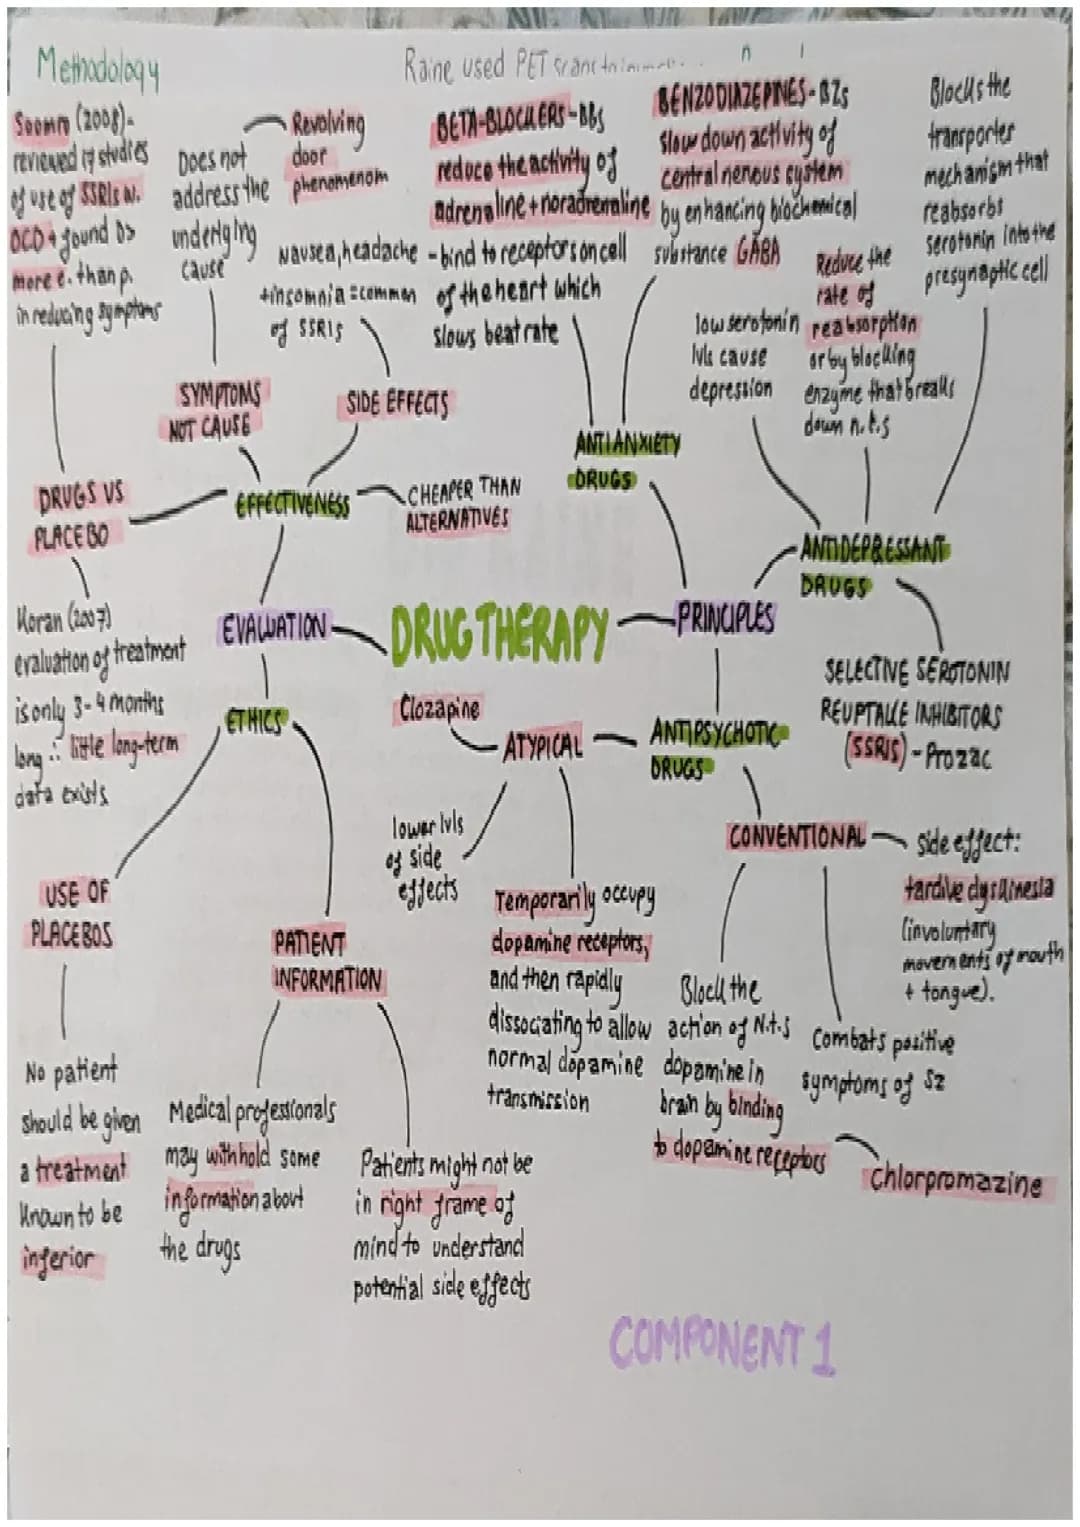 Methodology
Raine used PET scans to
Soomro (2008)-
reviewed 17 studies
of use of SSRIs w.
OCD + found Ds
more e. than p.
in reducing symptoms
Does not
address the
underlying
cause
Revolving
door
phenomenom
Nausea, headache
+insomnia = common
of SSRIs
BETA-BLOCKERS - BBs
reduce the activity of
adrenaline + noradrenaline
- bind to receptors on cell
of the heart which
slows beat rate
BENZODIAZEPINES - BZs
slow down activity of
central nervous system
by enhancing biochemical
substance GABA
Blocks the
transporter
mechanism that
reabsorbs
serotonin into the
presynaptic cell
low serotonin
lvls cause
depression
Reduce the
rate of
reabsorption
or by blocking
enzyme that breaks
down n.t.s
SYMPTOMS
NOT CAUSE
SIDE EFFECTS
ANTIANXIETY
DRUGS
DRUGS VS
PLACEBO
EFFECTIVENESS
CHEAPER THAN
ALTERNATIVES
ANTIDEPRESSANT
DRUGS
Koran (2007)
evaluation of treatment
is only 3-4 months
long ∴ little long-term
data exists
EVALUATION
DRUG THERAPY
PRINCIPLES
SELECTIVE SEROTONIN
REUPTAKE INHIBITORS
(SSRIS) - Prozac
ETHICS
Clozapine
ATYPICAL
ANTIPSYCHOTIC
DRUGS
lower lvls
of side
effects
CONVENTIONAL
side effect:
tardive dyskinesia
(involuntary
movements of mouth
+ tongue).
USE OF
PLACEBOS
PATIENT
INFORMATION
Temporarily occupy
dopamine receptors,
and then rapidly
dissociating to allow
normal dopamine
transmission
Block the
action of N.t.s
dopamine in
brain by binding
to dopamine receptors
Combats positive
symptoms of Sz
Chlorpromazine
No patient
should be given
a treatment
known to be
inferior
Medical professionals
may withhold some
information about
the drugs
Patients might not be
in right frame of
mind to understand
potential side effects
COMPONENT 1